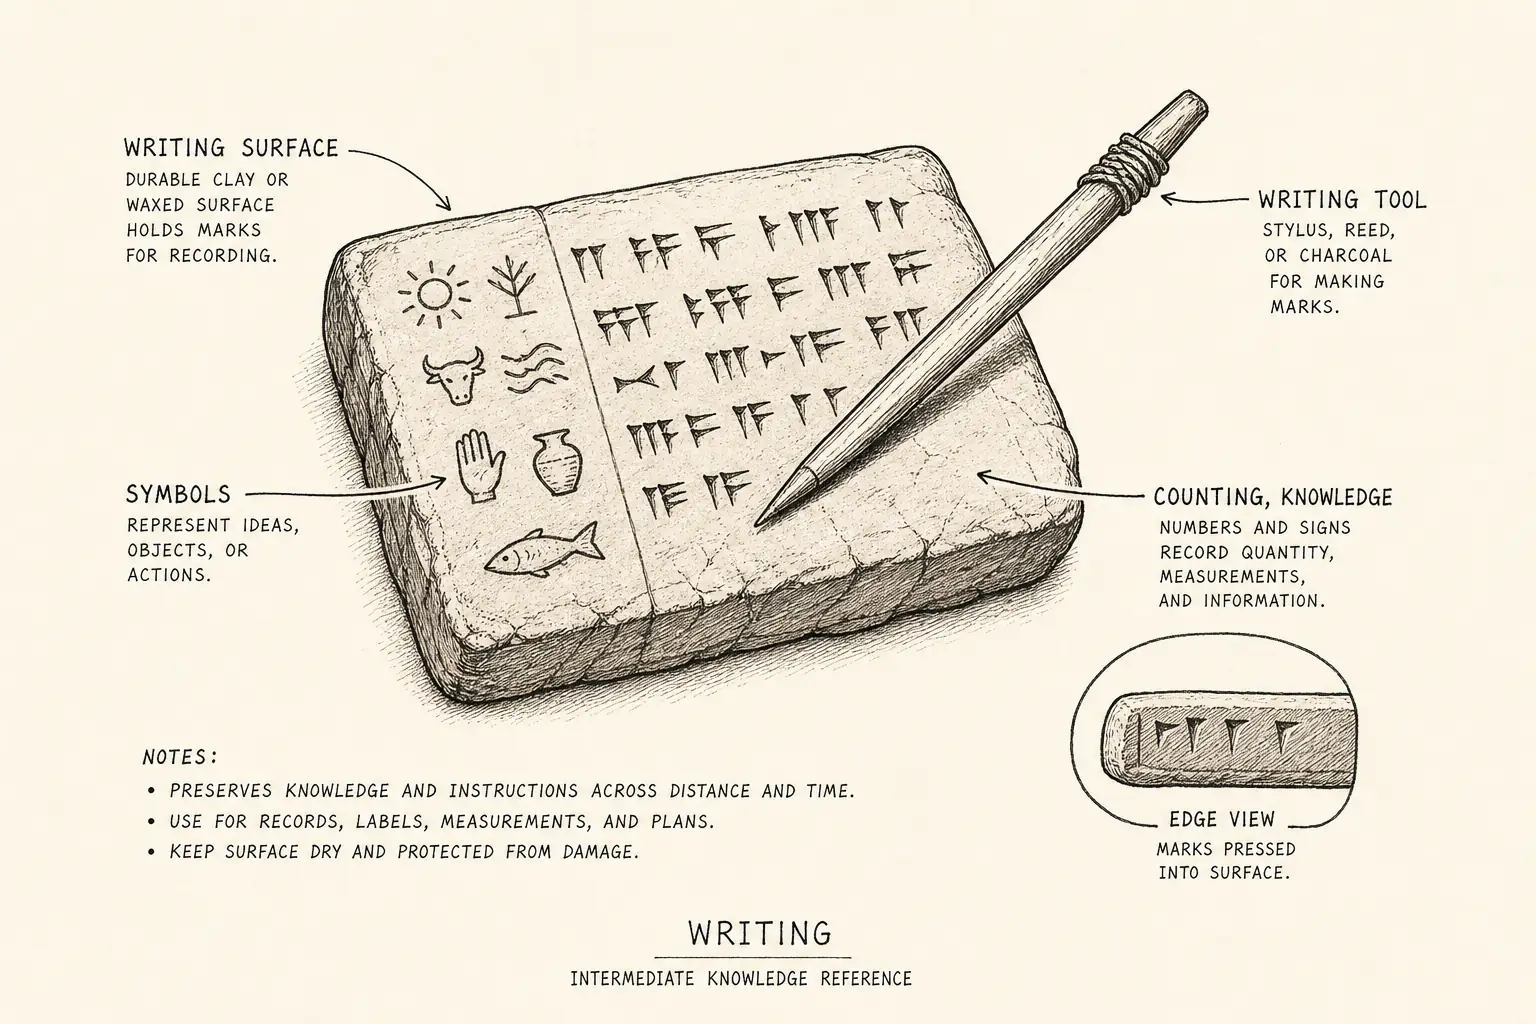 WRITING SURFACE
DURABLE CLAY OR
WAXED SURFACE
HOLDS MARKS
FOR RECORDING.
WRITING TOOL
STYLUS, REED,
OR CHARCOAL
FOR MAKING
MARKS.
SYMBOLS
REPRESENT IDEAS,
OBJECTS, OR
ACTIONS.
COUNTING, KNOWLEDGE
NUMBERS AND SIGNS
RECORD QUANTITY,
MEASUREMENTS,
AND INFORMATION.
EDGE VIEW
MARKS PRESSED
INTO SURFACE.
NOTES:
• PRESERVES KNOWLEDGE AND INSTRUCTIONS ACROSS DISTANCE AND TIME.
• USE FOR RECORDS, LABELS, MEASUREMENTS, AND PLANS.
• KEEP SURFACE DRY AND PROTECTED FROM DAMAGE.
WRITING
INTERMEDIATE KNOWLEDGE REFERENCE